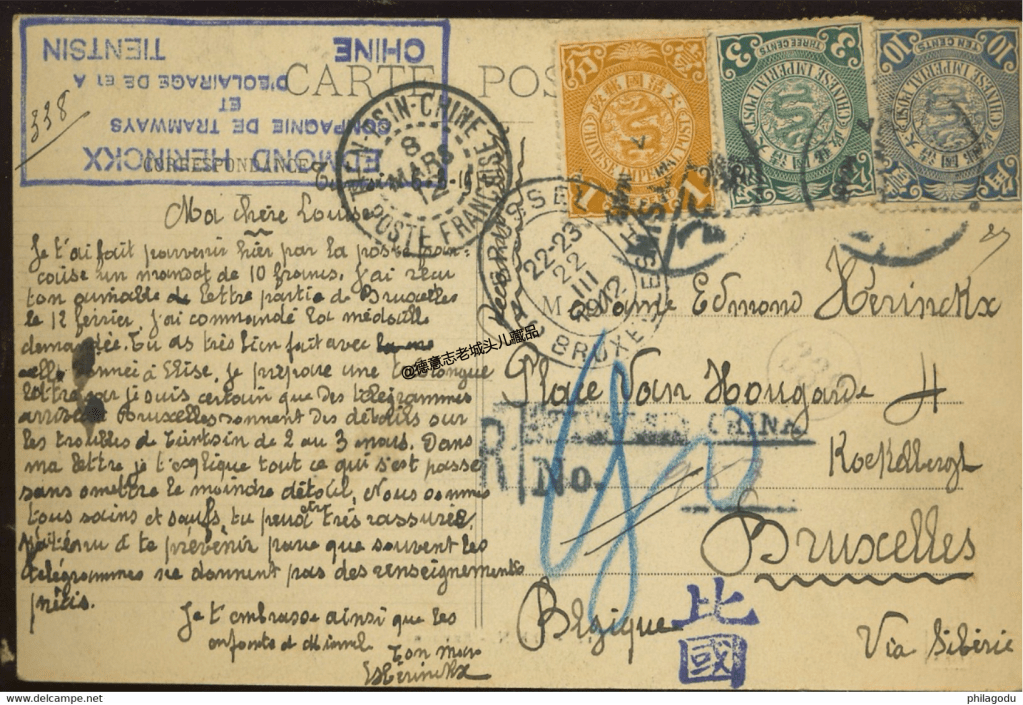 EDMOND HERINCKX
COMPAGNIE DE TRAMWAYS
ET
D'ECLAIRAGE DE ET A
TIENTSIN
CHINE
338
CARTE POS
CORRESPONDANCE
TIEN-TSIN-CHINE
8
MARS
12
POSTE FRANÇAISE
CHINESE IMPERIAL POST
大清國郵政
1
CHINESE IMPERIAL POST
THREE CENTS
3
大清國郵政
CHINESE IMPERIAL POST
TEN CENTS
10
大清國郵政
22-23
22
III
1912
BRUXELLES
Ma chère Louise
Je t'ai fait parvenir hier par la poste fran-
caise un mandat de 10 francs. J'ai reçu
ton aimable lettre partie de Bruxelles
le 12 février. J'ai commandé la médaille
demandée. Tu as très bien fait avec
à Elise. Je prépare une longue
lettre car je suis certain que des télégrammes
Bruxelles donnent des détails sur
les troubles de Tientsin de 2 au 3 mars. Dans
ma lettre je t'explique tout ce qui s'est passé
sans omettre le moindre détail. Nous sommes
tous sains et saufs, tu peux être très rassurée.
à te prévenir parce que souvent les
télégrammes ne donnent pas des renseignements
précis.
Je t'embrasse ainsi que les
enfants et
ton mari
EdHérinckx
Madame Edmond Hérinckx
Place Van Hougarde 4
Koekelbergh
Bruxelles
Belgique
Via Sibérie
R
CHINA
No.
比
國
@德意志老城头儿藏品
philagodu